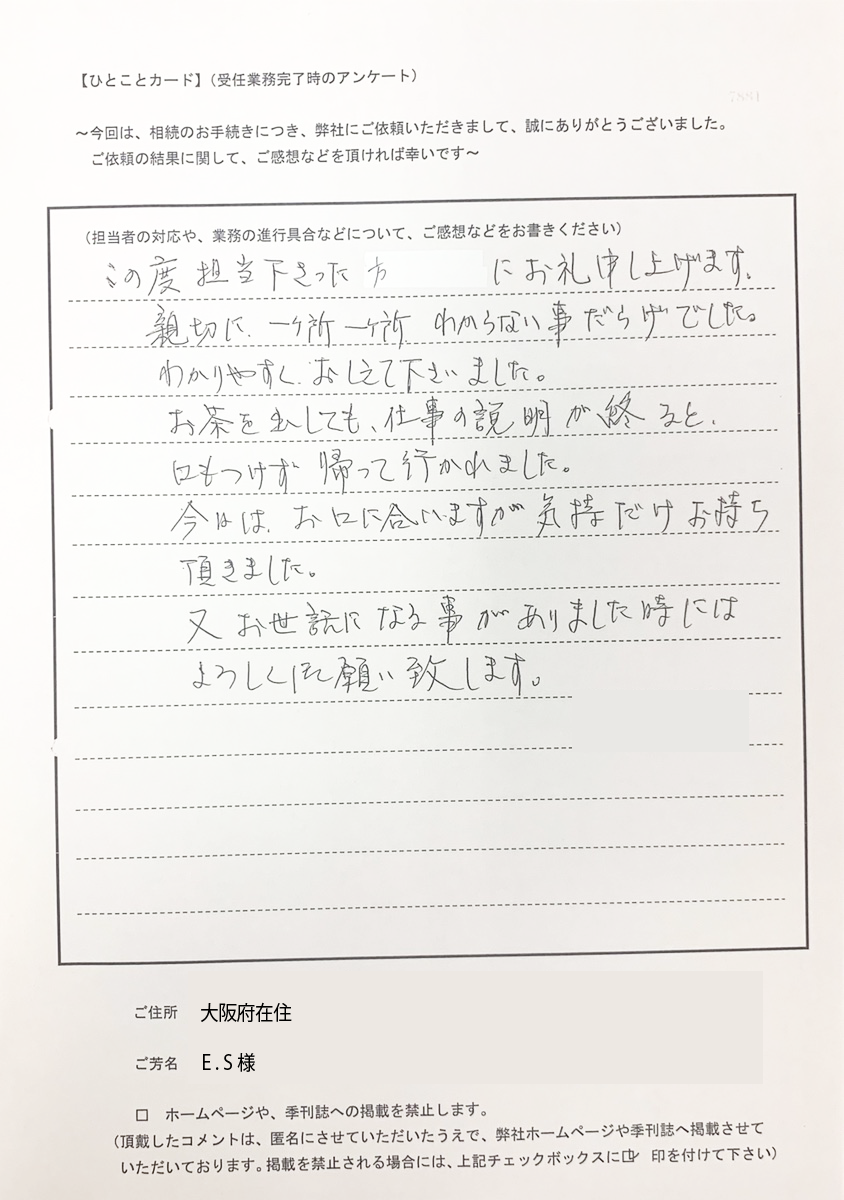 【ひとことカード】（受任業務完了時のアンケート）
7881
～今回は、相続のお手続きにつき、弊社にご依頼いただきまして、誠にありがとうございました。
ご依頼の結果に関して、ご感想などを頂ければ幸いです～
（担当者の対応や、業務の進行具合などについて、ご感想などをお書きください）
この度担当下さった方 にお礼申し上げます。
親切に、一ヶ所一ヶ所 わからない事だらけでした。
わかりやすく、おしえて下さいました。
お茶を出しても、仕事の説明が終ると、
口もつけず 帰って行かれました。
今日は、お口に合いますが気持だけお持ち
頂きました。
又お世話になる事がありました時には
よろしくお願い致します。
ご住所 大阪府在住
ご芳名 E.S様
□ ホームページや、季刊誌への掲載を禁止します。
（頂戴したコメントは、匿名にさせていただいたうえで、弊社ホームページや季刊誌へ掲載させて
いただいております。掲載を禁止される場合には、上記チェックボックスに☑ 印を付けて下さい）